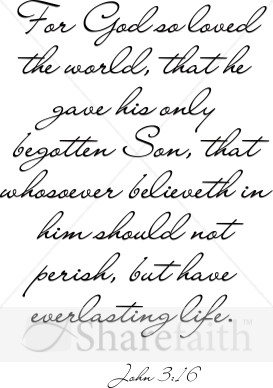 For God so loved
the world, that he
gave his only
begotten Son, that
whosoever believeth in
him should not
perish, but have
everlasting life.
Sharefaith
John 3:16